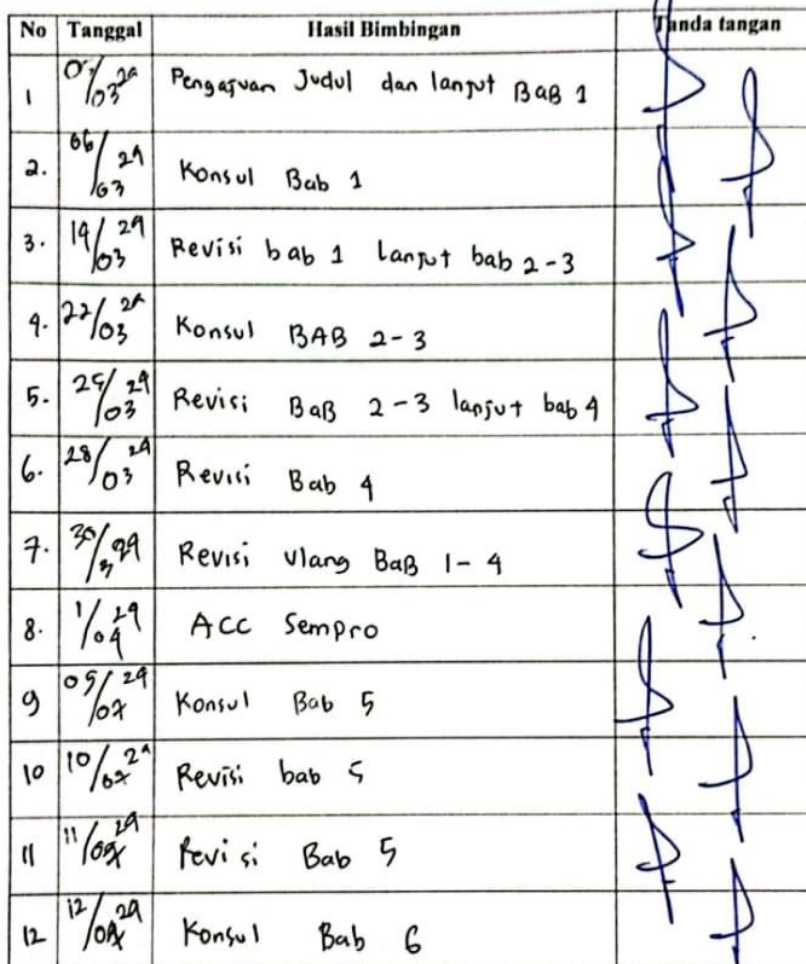 No Tanggal Hasil Bimbingan Tanda tangan
1 03 24 Pengajuan Judul dan lanjut BAB 1
2. 06/03 24 Konsul Bab 1
3. 19/03 24 Revisi bab 1 lanjut bab 2-3
4. 22/03 24 Konsul BAB 2-3
5. 25/03 24 Revisi BAB 2-3 lanjut bab 4
6. 28/03 24 Revisi Bab 4
7. 30/3 24 Revisi ulang BAB 1-4
8. 1/04 24 ACC Sempro
9 05/07 24 Konsul Bab 5
10 10/07 24 Revisi bab 5
11 11/07 24 Revisi Bab 5
12 12/ 24 Konsul Bab 6